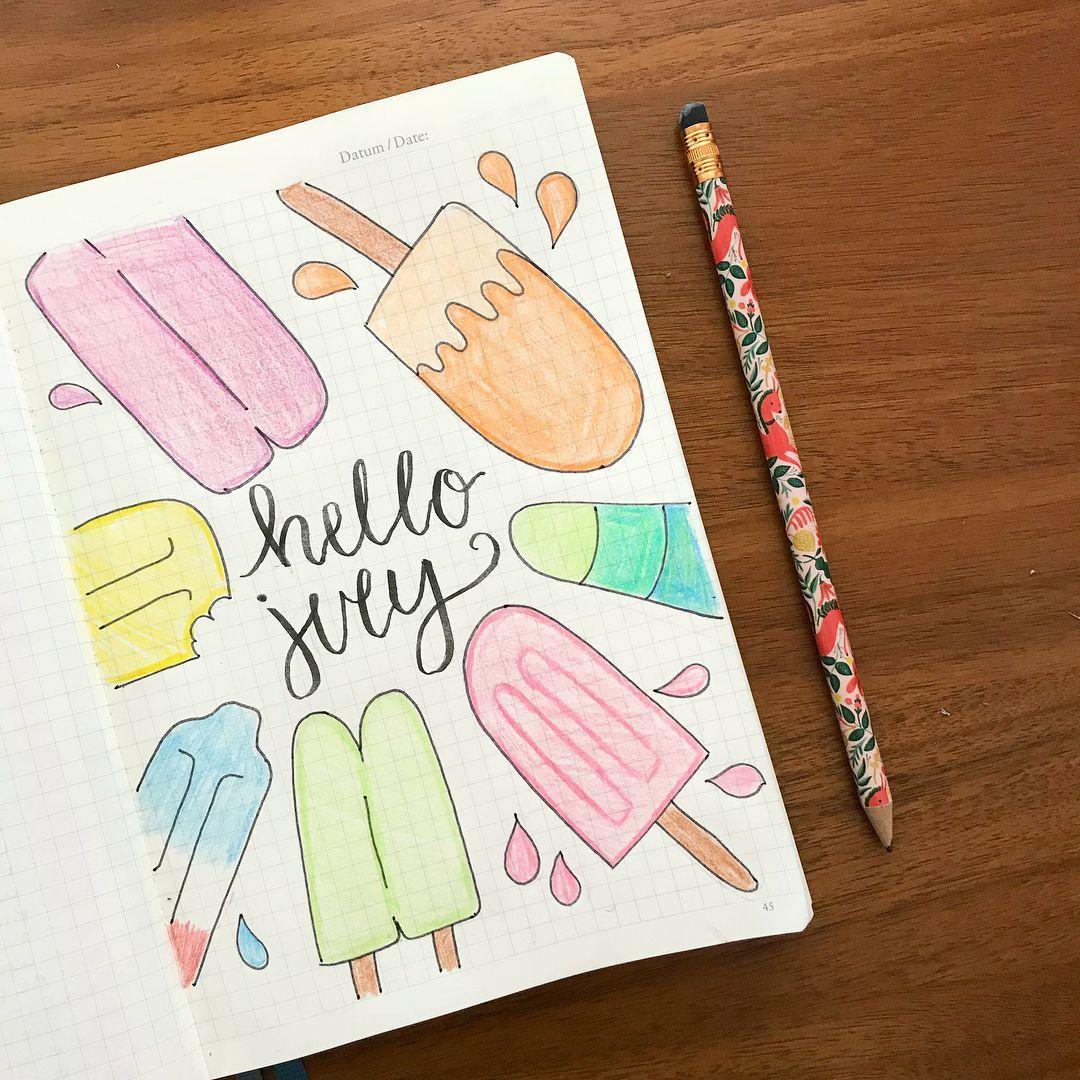 Datum / Date:
hello
july
45